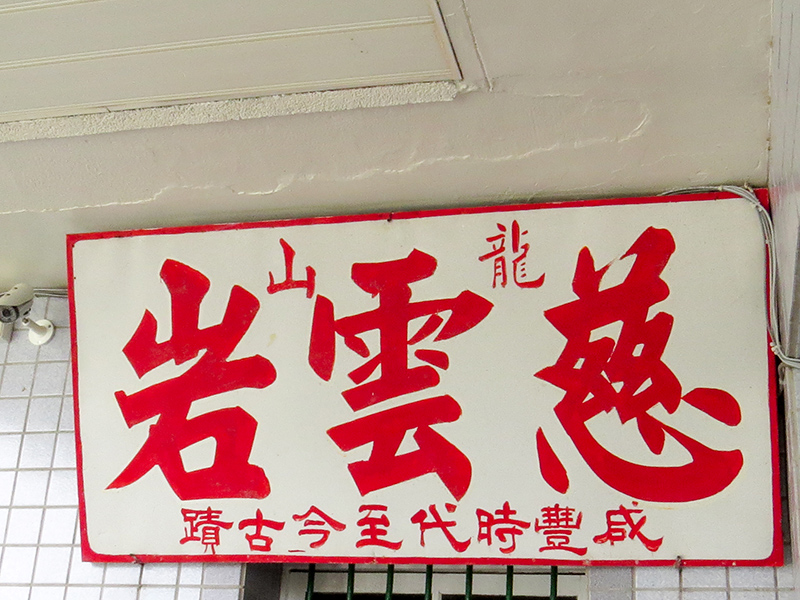 龍山
慈雲岩
咸豐時代至今古蹟